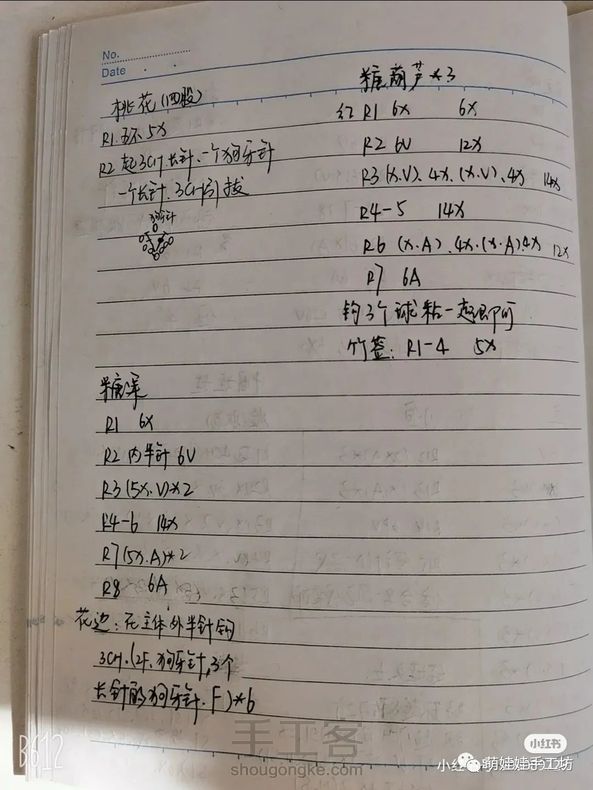 No.
Date
桃花(四股)
R1.环5X
R2 起3CH.长针.一个狗牙针
一个长针.3CH引拔
狗牙针
糖葫芦*3
红 R1 6X 6X
R2 6V 12X
R3 (X.V).4X.(X.V).4X 14X
R4-5 14X
R6 (X.A).4X.(X.A)4X 12X
R7 6A
钩3个球粘一起即可
竹签: R1-4 5X
糖果
R1 6X
R2 内半针 6V
R3 (5X.V)*2
R4-6 14X
R7 (5X.A)*2
R8 6A
花边: 在主体外半针钩
3CH.(2F.狗牙针,3个
长针的狗牙针.F)*6
B612
手工客
shougongke.com
小红书
萌娃娃手工坊